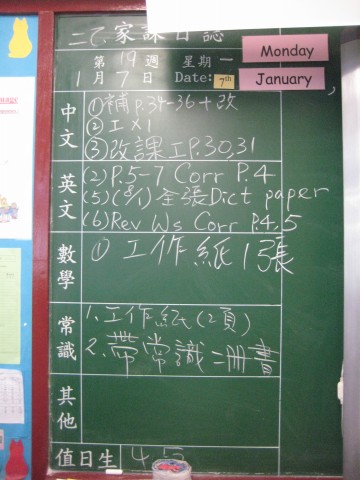 二乙 家課日誌
第19週 星期一 Monday
1月7日 Date: 7th January
中文
①補p.34-36+改
②工X1
③改課工P.30,31
英文
(2) P.5-7 Corr P.4
(5) (8/1) 全張Dict paper
(6) Rev Ws Corr P.4,5
數學
① 工作紙1張
常識
1. 工作紙(2頁)
2. 帶常識二冊書
其他
值日生 4 5